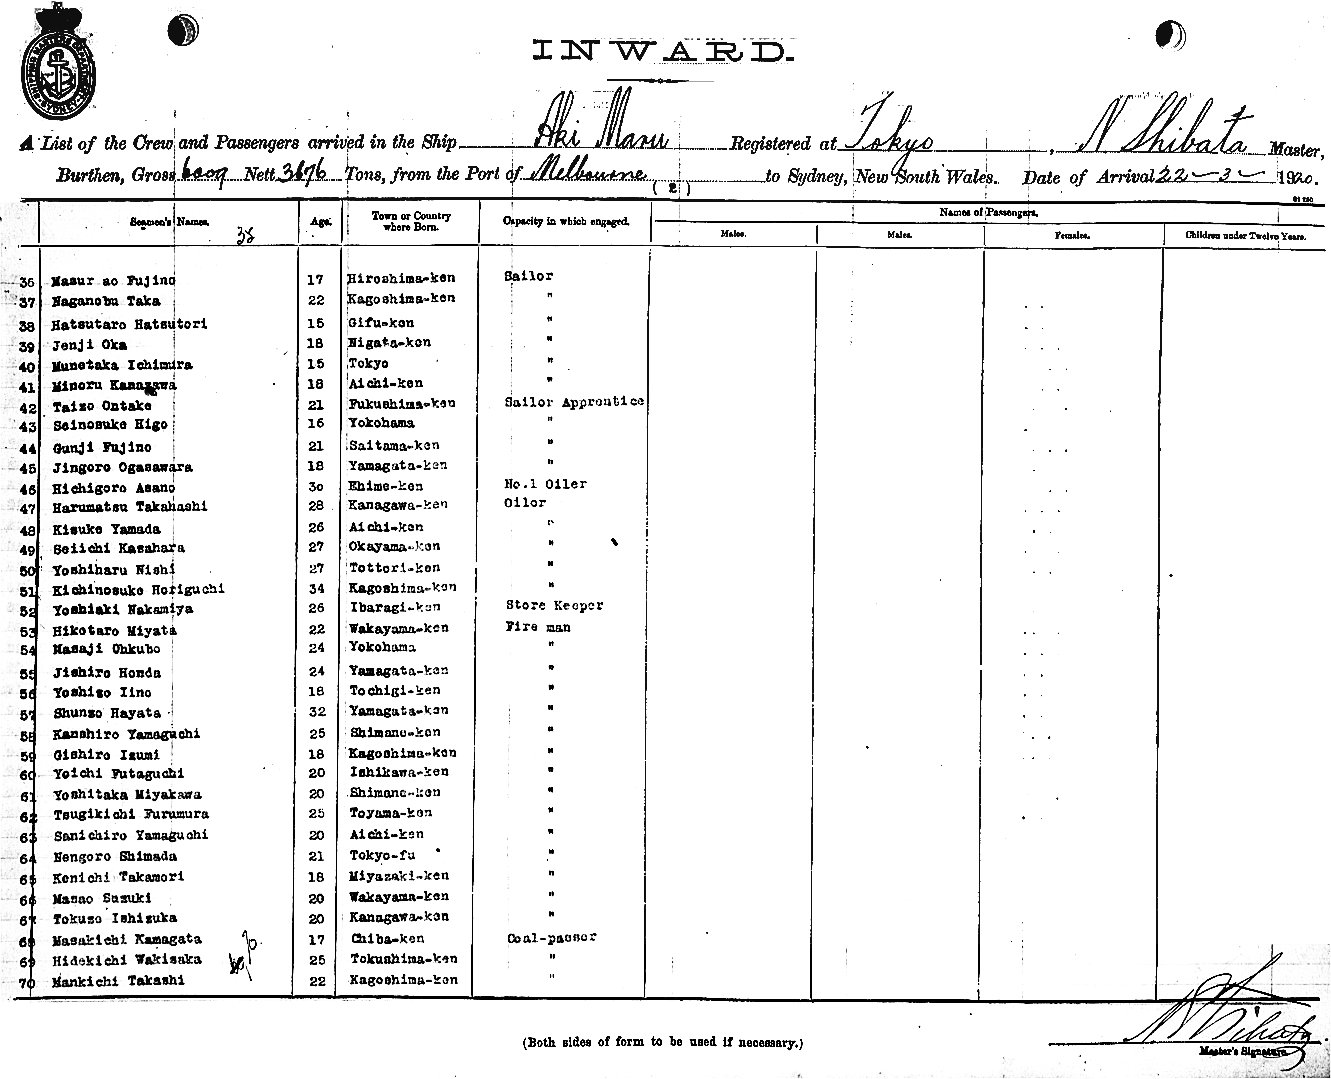 INWARD.
A List of the Crew and Passengers arrived in the Ship Aki Maru Registered at Tokyo, N Shibata Master,
Burthen, Gross 6009 Nett 3676 Tons, from the Port of Melbourne to Sydney, New South Wales. Date of Arrival 22-3-1920.
( 2 )
Seamen's Names. Age. Town or Country where Born. Capacity in which engaged. Names of Passengers.
Males. Males. Females. Children under Twelve Years.
36 Masur ao Fujino 17 Hiroshima-ken Sailor
37 Naganobu Taka 22 Kagoshima-ken "
38 Hatsutaro Hatsutori 15 Gifu-ken "
39 Jenji Oka 18 Nigata-ken "
40 Munetaka Ichimira 15 Tokyo "
41 Minoru Kanazawa 18 Aichi-ken "
42 Taizo Ontake 21 Fukushima-ken Sailor Apprentice
43 Seinosuke Higo 16 Yokohama "
44 Gunji Fujino 21 Saitama-ken "
45 Jingoro Ogasawara 18 Yamagata-ken "
46 Hichigoro Asano 30 Ehime-ken No.1 Oiler
47 Harumatsu Takahashi 28 Kanagawa-ken Oiler
48 Kisuke Yamada 26 Aichi-ken "
49 Seiichi Kasahara 27 Okayama-ken "
50 Yoshiharu Nishi 27 Tottori-ken "
51 Kichinosuke Horiguchi 34 Kagoshima-ken "
52 Yoshiaki Nakamiya 26 Ibaragi-ken Store Keeper
53 Hikotaro Miyata 22 Wakayama-ken Fire man
54 Masaji Ohkubo 24 Yokohama "
55 Jishiro Honda 24 Yamagata-ken "
56 Yoshizo Iino 18 Tochigi-ken "
57 Shunzo Hayata 32 Yamagata-ken "
58 Kanshiro Yamaguchi 25 Shimane-ken "
59 Gishiro Izumi 18 Kagoshima-ken "
60 Yoichi Futaguchi 20 Ishikawa-ken "
61 Yoshitaka Miyakawa 20 Shimane-ken "
62 Tsugikichi Furumura 25 Toyama-ken "
63 Sanichiro Yamaguchi 20 Aichi-ken "
64 Nengoro Shimada 21 Tokyo-fu "
65 Kenichi Takamori 18 Miyazaki-ken "
66 Masao Suzuki 20 Wakayama-ken "
67 Tokuzo Ishizuka 20 Kanagawa-ken "
68 Masakichi Kamagata 17 Chiba-ken Coal-passer
69 Hidekichi Wakisaka 25 Tokushima-ken "
70 Mankichi Takashi 22 Kagoshima-ken "
N Shibata
(Both sides of form to be used if necessary.)
Master's Signature.